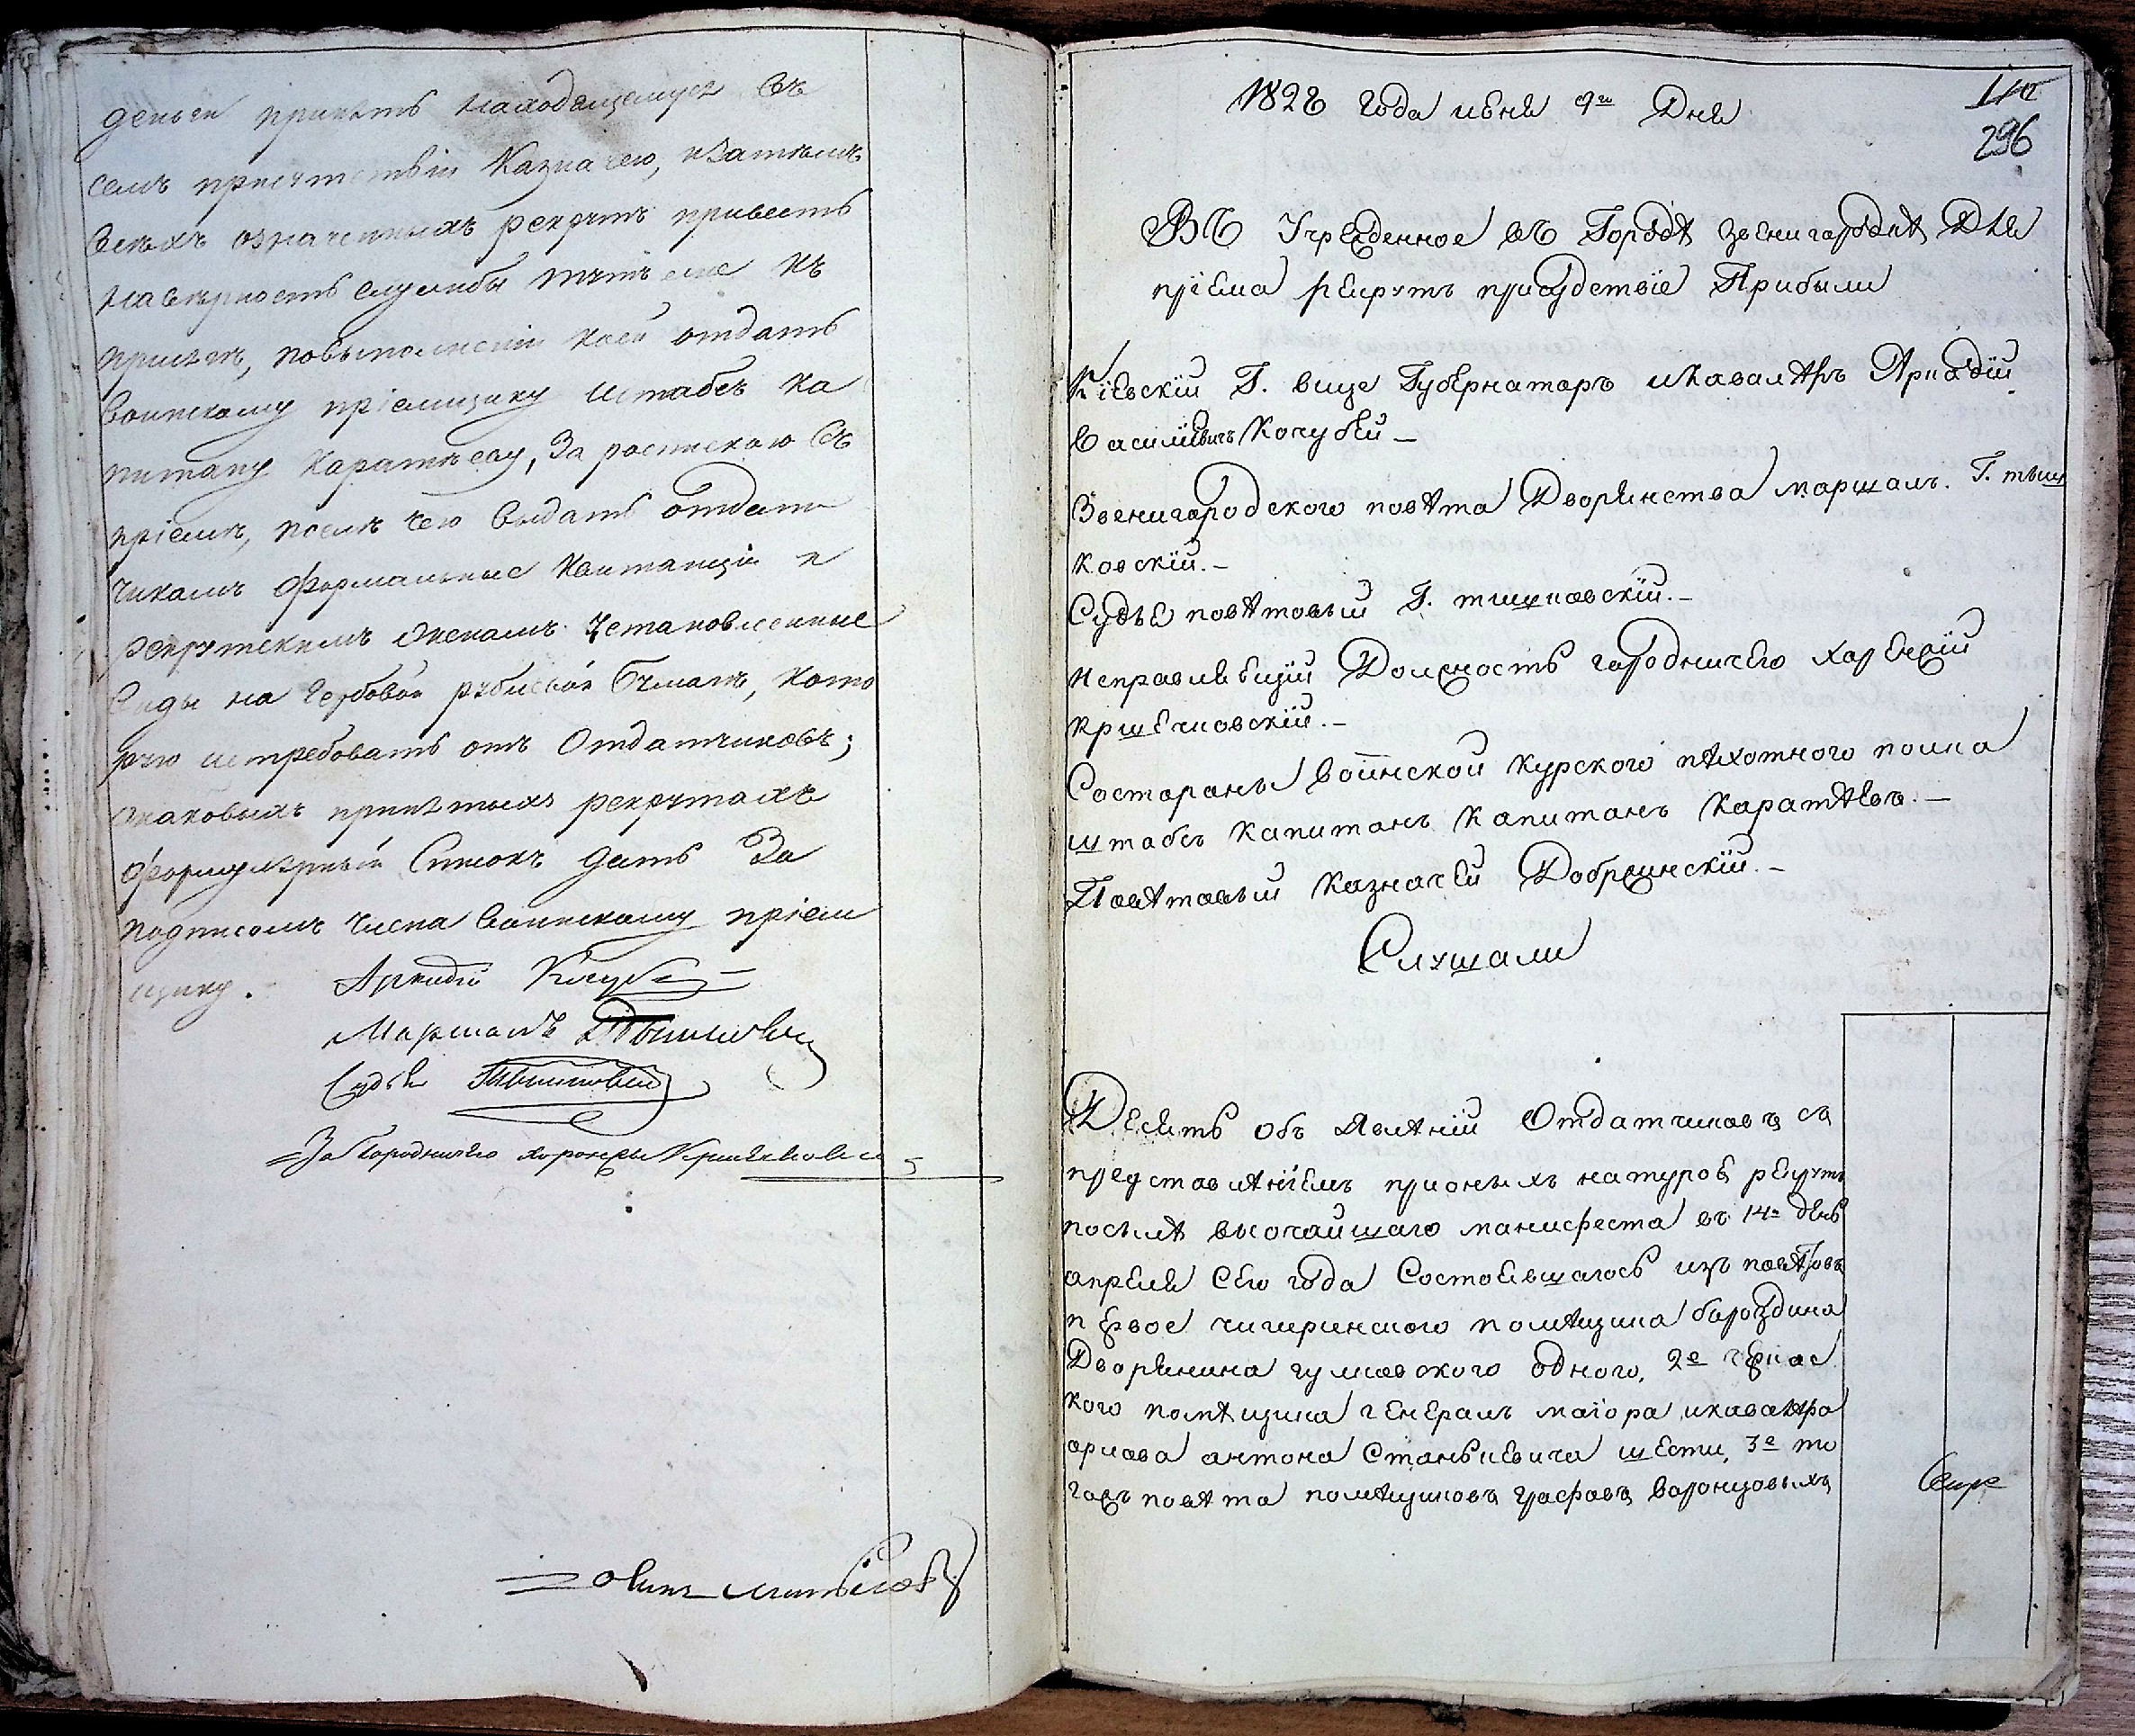 деньги принять находящемуся въ
семъ присутствіи Казначею, изатѣмъ
всѣхъ означенныхъ рекрутъ привесть
навѣрность службы тутъ еще къ
присягѣ, повыполненіи коей отдать
воинскому пріемщику Штабсъ Ка
питану Каратѣеву, За роспискою въ
пріемѣ, послѣ чего выдать отдат
чикамъ формальные Квитанціи и
рекрутскимъ Установленные
виды на Гербовой рублевой бумагѣ, кото
рую истребовать отъ Отдатчиковъ;
окаковыхъ принятыхъ рекрутахъ
формулярный Списокъ дать За
подписомъ Члена воинскому пріем
щику.
Аркадій Кочубей
Маршалъ
Судья
За Городничего хоронжій
1828 Года июня 9го Дня
110
296
ВЪ Учрежденное въ Городѣ звенигородкѣ Для
пріема рекрутъ присудствіе Прибыли
Кіевскій Г. вице Губернаторъ икавалѣръ Аркадій
Василіевичъ Кочубей –
Звенигородского повѣта Дворянства маршалъ. Г. тыш
ковскій. –
Судья повѣтовый Г. тишковскій. –
исправляющій Должность городничего харенжій
кршечковскій. –
Состораны воинской Курского пѣхотного полка
штабсъ Капитанъ Капитанъ Каратѣевъ. –
Повѣтовый Казначей Добржинскій. –
Слушали
Десять объ явлѣній Отдатчиковъ съ
представлѣніемъ прионыхъ натурою рекрутъ
посилѣ высочайшаго манифеста въ 14й день
апреля Сего года Состоявшагось изъ повѣтовъ
первое чигиринского помѣщика бороздина
Дворянина гулковского одного, 2е черкас
кого помѣщика генералъ маіора икавалѣра
орлова антона Станькевича шести, 3е то
гожъ повѣта помѣщиковъ графовъ Воронцовыхъ